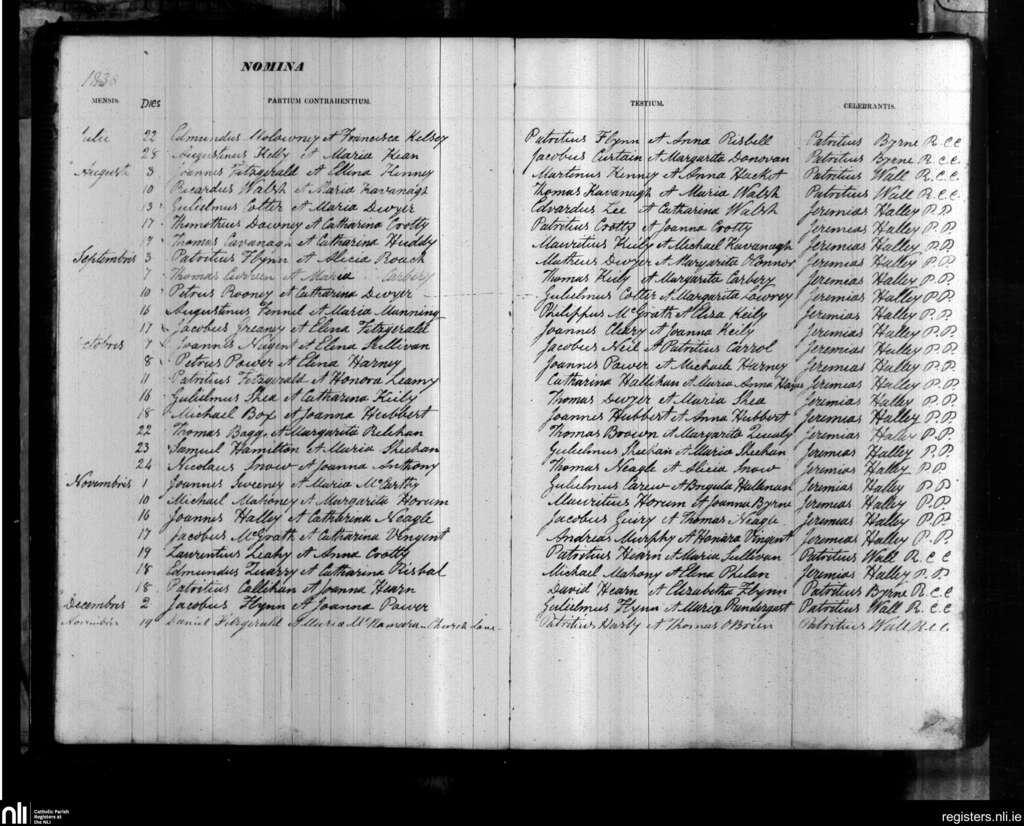 NOMINA
183
MENSIS. Dies PARTIUM CONTRAHENTIUM. TESTIUM. CELEBRANTIS.
Julii 22 Edmundus Molowney et Francisca Kelsey Patritius Flynn et Anna Risbell Patritius Byrne R.C.C.
28 Augustinus Kelly et Maria Kean Jacobus Curtain et Margarita Donovan Patritius Byrne R.C.C.
August 3 Joannes Fitzgerald et Ellina Kenney Martinus Kenney et Anna Hacket Patritius Wall R.C.C.
10 Ricardus Walsh et Maria Kavanagh Thomas Kavanagh et Maria Walsh Patritius Wall R.C.C.
13 Gulielmus Cotter et Maria Dwyer Edvardus Lee et Catharina Walsh Jeremias Halley P.P.
17 Thimothius Downey et Catharina Crotty Patritius Crotty et Joanna Crotty Jeremias Halley P.P.
19 Thomas Cavanagh et Catharina Huddy Mauritius Kiely et Michael Kavanagh Jeremias Halley P.P.
Septembris 3 Patritius Flynn et Alicia Roach Matheus Dwyer et Margarita O'Connor Jeremias Halley P.P.
7 Thomas et Maria Carbery Thomas Kiely et Margarita Carbery Jeremias Halley P.P.
10 Petrus Rooney et Catharina Dwyer Gulielmus Cotter et Margarita Lowrey Jeremias Halley P.P.
16 Augustinus Fennel et Maria Manning Philippus McGrath et Eliza Keily Jeremias Halley P.P.
17 Jacobus Greany et Elina Fitzgerald Joannes Cleary et Joanna Keily Jeremias Halley P.P.
Octobris 7 Joannes Nugent et Elina Sullivan Jacobus Neil et Patritius Carrol Jeremias Halley P.P.
8 Petrus Power et Elina Harney Joannes Power et Michaele Harney Jeremias Halley P.P.
11 Patritius Fitzgerald et Honora Leamy Catharina Hallihan et Maria Anna Hayes Jeremias Halley P.P.
16 Gulielmus Shea et Catharina Keily Thomas Dwyer et Maria Shea Jeremias Halley P.P.
18 Michael Box et Joanna Hubbert Joannes Hubbert et Anna Hubbert Jeremias Halley P.P.
22 Thomas Bagg et Margarita Relehan Thomas Brown et Margarita Jeremias Halley P.P.
23 Samuel Hamilton et Maria Sheehan Gulielmus Sheehan et Maria Sheehan Jeremias Halley P.P.
24 Nicolaus Snow et Joanna Anthony Thomas Neagle et Alicia Snow Jeremias Halley P.P.
Novembris 1 Joannes Sweeney et Maria McCarthy Gulielmus Carew et Brigida Hallinan Jeremias Halley P.P.
10 Michael Mahoney et Margarita Horum Mauritius Horum et Joanna Byrne Jeremias Halley P.P.
16 Joannes Halley et Catharina Neagle Jacobus Guiry et Thomas Neagle Jeremias Halley P.P.
17 Jacobus McGrath et Catharina Vingent Andreas Murphy et Honora Vingent Jeremias Halley P.P.
19 Laurentius Leahy et Anna Crotty Patritius Hearn et Maria Sullivan Patritius Wall R.C.C.
18 Edmundus et Catharina Risbal Michael Mahony et Elina Phelan Jeremias Halley P.P.
18 Patritius Callihan et Joanna Hearn David Hearn et Elizabetha Flynn Patritius Byrne R.C.C.
Decembris 2 Jacobus Flynn et Joanna Power Gulielmus Flynn et Maria Prendergast Patritius Wall R.C.C.
Novembris 19 Daniel Fitzgerald et Maria McNamara - Church Lane Patritius Harty et Thomas O'Brien Patritius Wall R.C.C.
nli Catholic Parish Registers at the NLI
registers.nli.ie